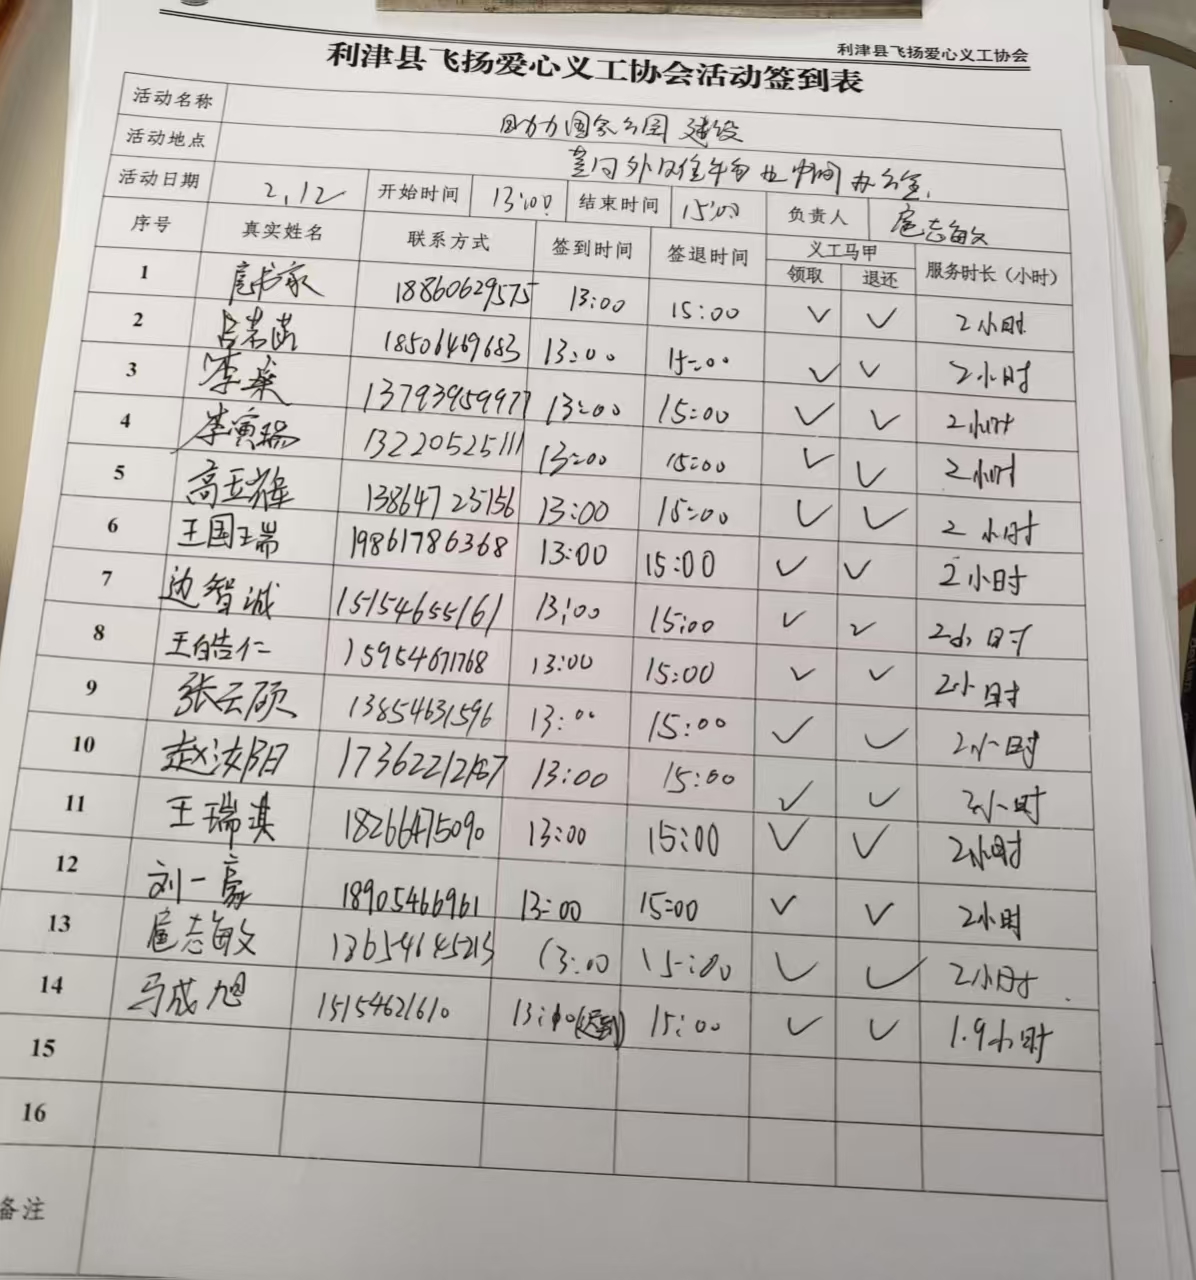 利津县飞扬爱心义工协会
利津县飞扬爱心义工协会活动签到表
活动名称 助力国家公园建设
活动地点 办公室
活动日期 2.12 开始时间 13:00 结束时间 15:00 负责人 扈志敏
序号 真实姓名 联系方式 签到时间 签退时间 义工马甲 服务时长（小时）
领取 退还
1 扈书家 18860629575 13:00 15:00 ✓ ✓ 2小时
2 18506469683 13:00 15:00 ✓ ✓ 2小时
3 李燊 13793959977 13:00 15:00 ✓ ✓ 2小时
4 李演瑞 13220525111 13:00 15:00 ✓ ✓ 2小时
5 高玉雄 13864725156 13:00 15:00 ✓ ✓ 2小时
6 王国瑞 19861786368 13:00 15:00 ✓ ✓ 2小时
7 边智诚 15154655161 13:00 15:00 ✓ ✓ 2小时
8 王皓仁 15954671768 13:00 15:00 ✓ ✓ 2小时
9 张云硕 13854631596 13:00 15:00 ✓ ✓ 2小时
10 赵汝阳 13:00 15:00 ✓ ✓ 2小时
11 王瑞淇 18266475090 13:00 15:00 ✓ ✓ 2小时
12 刘一豪 18905466961 13:00 15:00 ✓ ✓ 2小时
13 扈志敏 13654645213 13:00 15:00 ✓ ✓ 2小时
14 马成旭 15154621610 13:10(迟到) 15:00 ✓ ✓ 1.9小时
15
16
备注